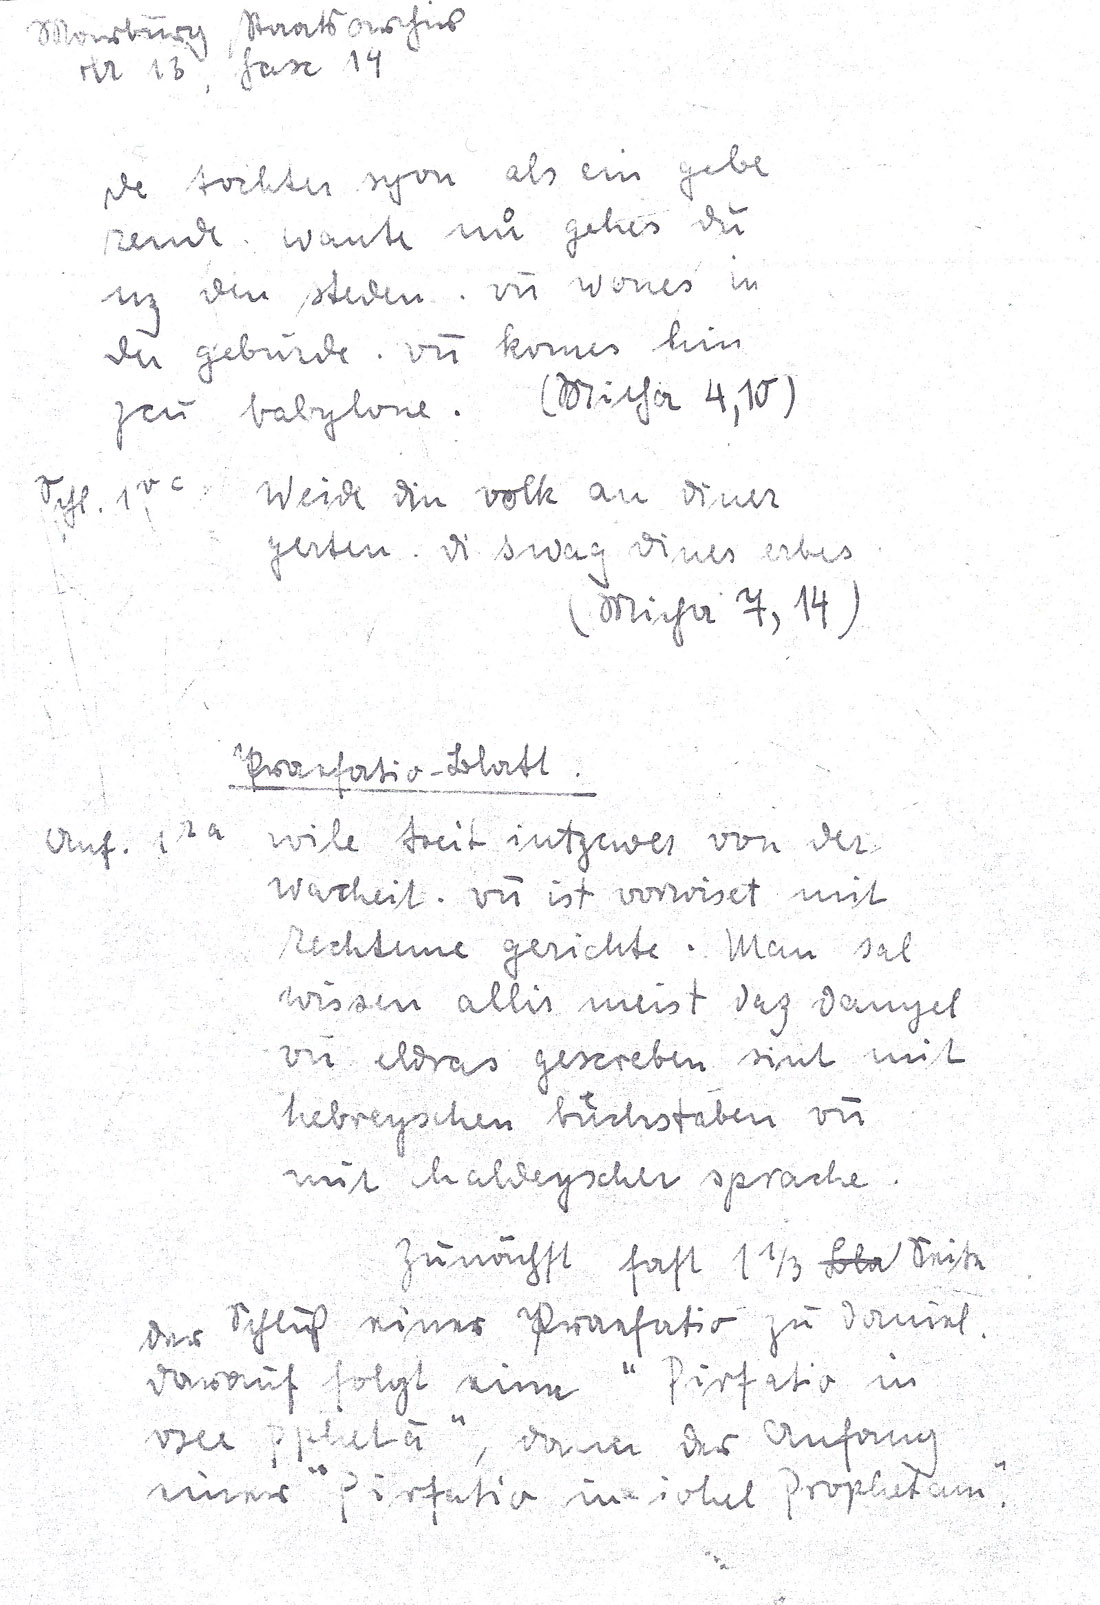 Marburg Staatsarchiv
Nr 13, Fasc 14
de tochter syon als ein gebe
rende. wante nů gehes dū
uz den steden. vn̄ wones in
der gebūrde. vn̄ komes hin
zcū babylone. (Micha 4,10)
Schl. 1vc Weide din volk an diner
gerten. di swag dines erbes
(Micha 7, 14)
Praefatio-Blatt.
Anf. 1ra wile treit intzcwer von der
warheit. vn̄ ist vorwiset mit
rechteme gerichte. Man sal
wissen allir meist daz danyel
vn̄ eldras gescreben sint mit
hebreyschen bůchstaben vn̄
mit kaldeyscher sprache.
Zunächst fast 1 1/3 Bla Seite
der Schluß einer Praefatio zu Daniel.
darauf folgt eine "Pirfatio in
osee pphetā", dann der Anfang
einer "Pirfatio in iohel Prophetam".